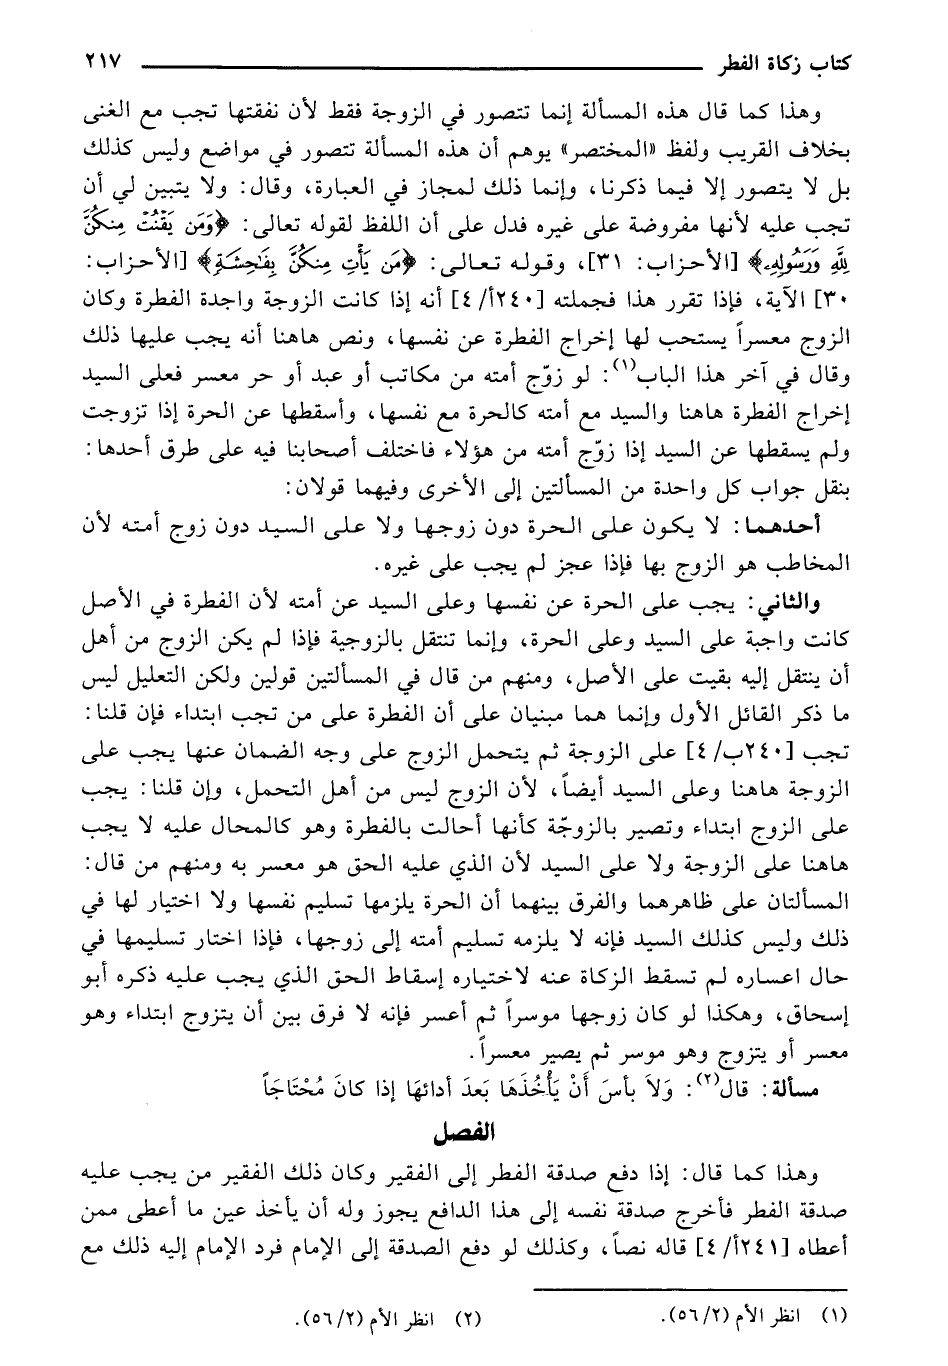 كتاب زكاة الفطر ٢١٧
وهذا كما قال هذه المسألة إنما تتصور في الزوجة فقط لأن نفقتها تجب مع الغنى
بخلاف القريب ولفظ «المختصر» يوهم أن هذه المسألة تتصور في مواضع وليس كذلك
بل لا يتصور إلا فيما ذكرنا، وإنما ذلك لمجاز في العبارة، وقال: ولا يتبين لي أن
تجب عليه لأنها مفروضة على غيره فدل على أن اللفظ لقوله تعالى: ﴿وَمَن يَقْنُتْ مِنكُنَّ
لِلَّهِ وَرَسُولِهِ﴾ [الأحزاب: ٣١]، وقوله تعالى: ﴿مَن يَأْتِ مِنكُنَّ بِفَاحِشَةٍ﴾ [الأحزاب:
٣٠] الآية، فإذا تقرر هذا فجملته [٢٤٠أ/ ٤] أنه إذا كانت الزوجة واجدة الفطرة وكان
الزوج معسراً يستحب لها إخراج الفطرة عن نفسها، ونص هاهنا أنه يجب عليها ذلك
وقال في آخر هذا الباب(١): لو زوّج أمته من مكاتب أو عبد أو حر معسر فعلى السيد
إخراج الفطرة هاهنا والسيد مع أمته كالحرة مع نفسها، وأسقطها عن الحرة إذا تزوجت
ولم يسقطها عن السيد إذا زوّج أمته من هؤلاء فاختلف أصحابنا فيه على طرق أحدها:
بنقل جواب كل واحدة من المسألتين إلى الأخرى وفيهما قولان:
أحدهما: لا يكون على الحرة دون زوجها ولا على السيد دون زوج أمته لأن
المخاطب هو الزوج بها فإذا عجز لم يجب على غيره.
والثاني: يجب على الحرة عن نفسها وعلى السيد عن أمته لأن الفطرة في الأصل
كانت واجبة على السيد وعلى الحرة، وإنما تنتقل بالزوجية فإذا لم يكن الزوج من أهل
أن ينتقل إليه بقيت على الأصل، ومنهم من قال في المسألتين قولين ولكن التعليل ليس
ما ذكر القائل الأول وإنما هما مبنيان على أن الفطرة على من تجب ابتداء فإن قلنا:
تجب [٢٤٠ب/ ٤] على الزوجة ثم يتحمل الزوج على وجه الضمان عنها يجب على
الزوجة هاهنا وعلى السيد أيضاً، لأن الزوج ليس من أهل التحمل، وإن قلنا: يجب
على الزوج ابتداء وتصير بالزوجّة كأنها أحالت بالفطرة وهو كالمحال عليه لا يجب
هاهنا على الزوجة ولا على السيد لأن الذي عليه الحق هو معسر به ومنهم من قال:
المسألتان على ظاهرهما والفرق بينهما أن الحرة يلزمها تسليم نفسها ولا اختيار لها في
ذلك وليس كذلك السيد فإنه لا يلزمه تسليم أمته إلى زوجها، فإذا اختار تسليمها في
حال اعساره لم تسقط الزكاة عنه لاختياره إسقاط الحق الذي يجب عليه ذكره أبو
إسحاق، وهكذا لو كان زوجها موسراً ثم أعسر فإنه لا فرق بين أن يتزوج ابتداء وهو
معسر أو يتزوج وهو موسر ثم يصير معسراً.
مسألة: قال(٢): وَلاَ بأسَ أَنْ يَأْخُذَهَا بَعدَ أدائهَا إذا كانَ مُحْتَاجَاً
الفصل
وهذا كما قال: إذا دفع صدقة الفطر إلى الفقير وكان ذلك الفقير من يجب عليه
صدقة الفطر فأخرج صدقة نفسه إلى هذا الدافع يجوز وله أن يأخذ عين ما أعطى ممن
أعطاه [٢٤١أ/ ٤] قاله نصاً، وكذلك لو دفع الصدقة إلى الإمام فرد الإمام إليه ذلك مع
(١) انظر الأم (٥٦/٢). (٢) انظر الأم (٥٦/٢).